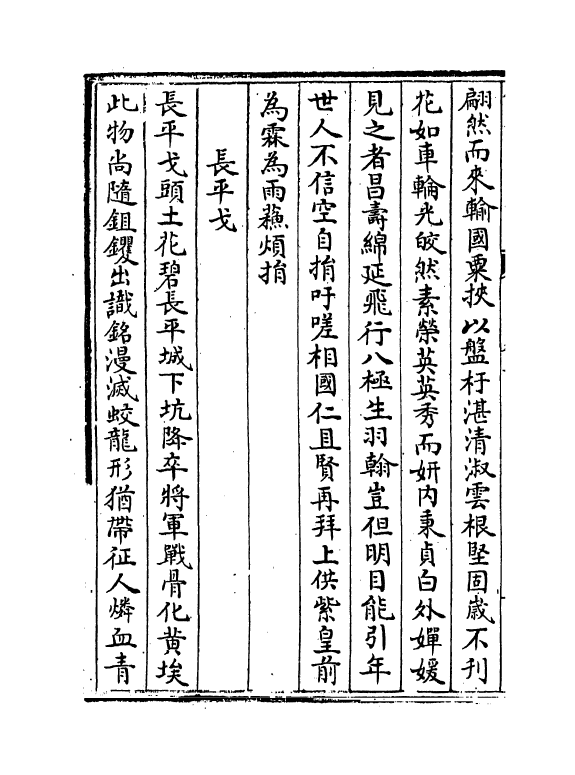 翩然而來輸國粟挾以盤杅湛清淑雲根堅固歲不刋
花如車輪光皎然素榮英英秀而妍内秉貞白外嬋媛
見之者昌壽綿延飛行八極生羽翰豈但明目能引年
世人不信空自捐吁嗟相國仁且賢再拜上供紫皇前
為霖為雨蘇煩捐
長平戈
長平戈頭土花碧長平城下坑降卒將軍戰骨化黄埃
此物尚隨鉏钁出識銘漫滅蛟龍形猶帶征人燐血青